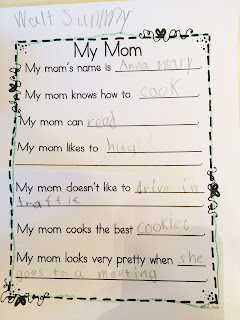 Walt Summy
My Mom
My mom's name is Anna mary
My mom knows how to cook
My mom can read
My mom likes to hug
My mom doesn't like to drive in
traffic
My mom cooks the best cookies
My mom looks very pretty when she
goes to a meeting